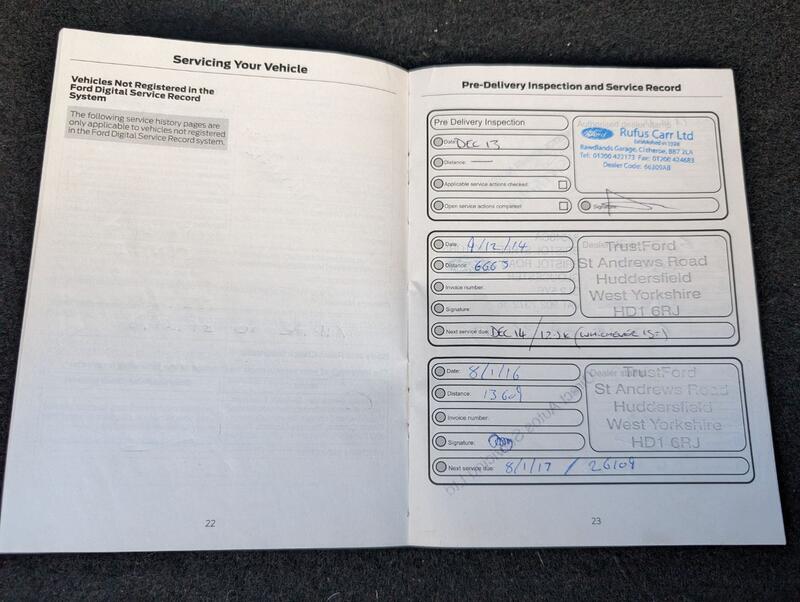 Servicing Your Vehicle
Vehicles Not Registered in the
Ford Digital Service Record
System
The following service history pages are
only applicable to vehicles not registered
in the Ford Digital Service Record system.
22
Pre-Delivery Inspection and Service Record
Pre Delivery Inspection
Date: DEC 13
Distance: —
Applicable service actions checked:
Open service actions completed:
Ford
Rufus Carr Ltd
Established in 1908
Rawdlands Garage, Clitheroe, BB7 2LA
Tel: 01200 422173 Fax: 01200 424683
Dealer Code: 66309AB
Signature:
Date: 9/12/14
Distance: 6663
Invoice number:
Signature:
Next service due: DEC 14 / 12.2K (WHICHEVER IS
TrustFord
St Andrews Road
Huddersfield
West Yorkshire
HD1 6RJ
Date: 8/1/16
Distance: 13609
Invoice number:
Signature:
Next service due: 8/1/17 / 26109
TrustFord
St Andrews Road
Huddersfield
West Yorkshire
HD1 6RJ
23